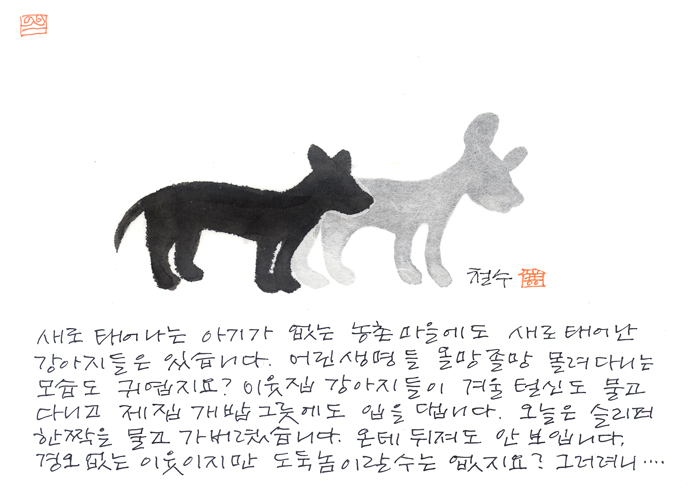 철수
새로 태어나는 아기가 없는 농촌마을에도 새로 태어난
강아지들은 있습니다. 어린생명들 올망졸망 몰려다니는
모습도 귀엽지요? 이웃집 강아지들이 겨울 털신도 물고
다니고 제집 개밥그릇에도 입을 댑니다. 오늘은 슬리퍼
한짝을 물고 가버렸습니다. 온데 뒤져도 안 보입니다.
경오없는 이웃이지만 도둑놈이랄수는 없지요? 그러려니····